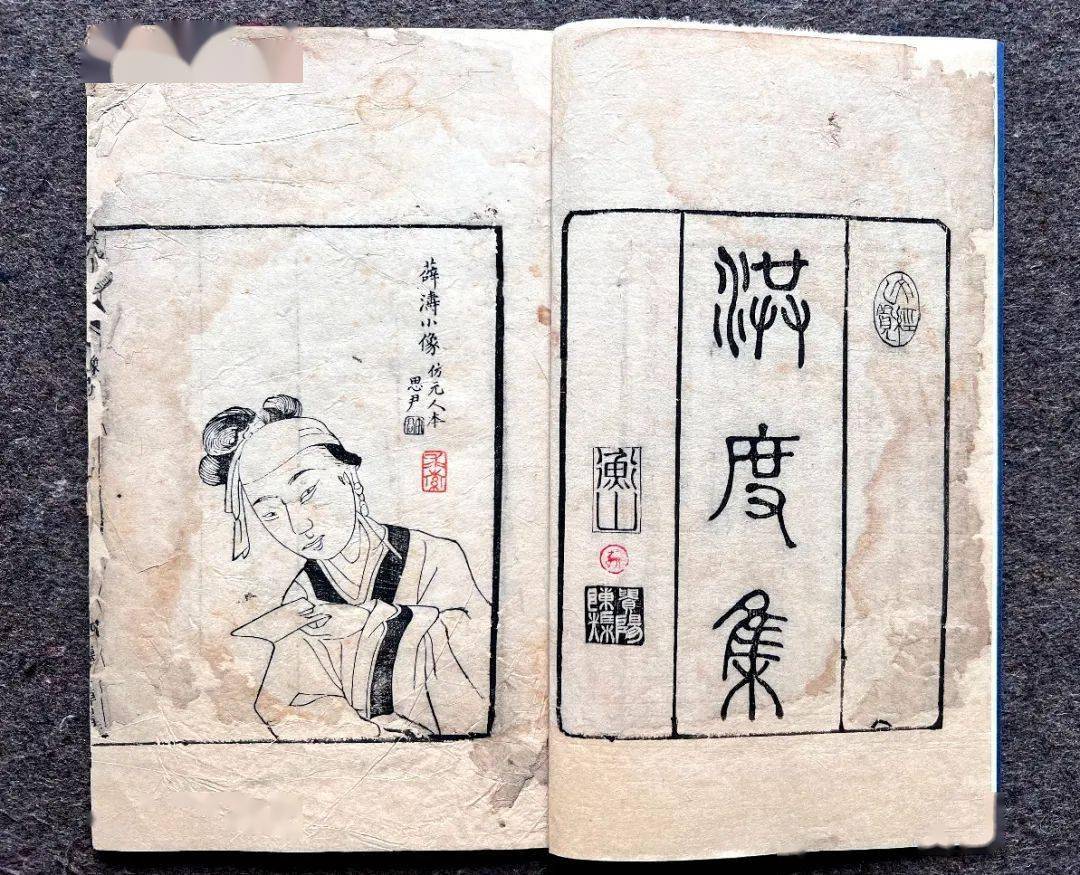 洪度集
衡山
貴陽
陳榘
薛濤小像
仿元人本
思尹